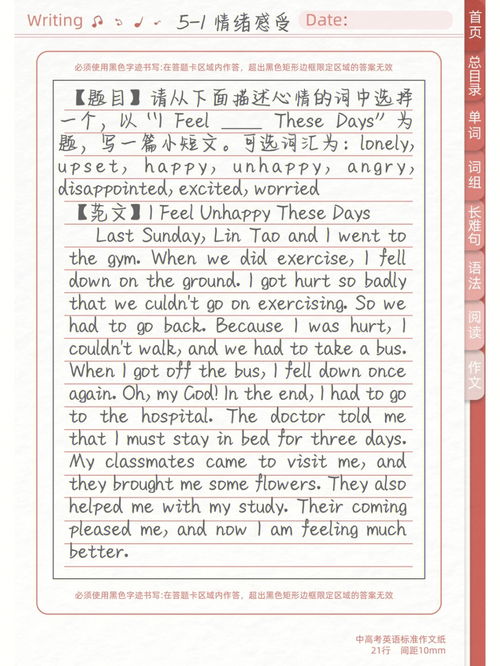 Writing
5-1 情绪感受
Date:
必须使用黑色字迹书写:在答题卡区域内作答，超出黑色矩形边框限定区域的答案无效
【题目】请从下面描述心情的词中选择
一个，以“I Feel ____ These Days”为
题，写一篇小短文。可选词汇为：lonely,
upset, happy, unhappy, angry,
disappointed, excited, worried
【范文】I Feel Unhappy These Days
Last Sunday, Lin Tao and I went to
the gym. When we did exercise, I fell
down on the ground. I got hurt so badly
that we culdn't go on exercising. So we
had to go back. Because I was hurt, I
couldn't walk, and we had to take a bus.
When I got off the bus, I fell down once
again. Oh, my God! In the end, I had to go
to the hospital. The doctor told me
that I must stay in bed for three days.
My classmates came to visit me, and
they brought me some flowers. They also
helped me with my study. Their coming
pleased me, and now I am feeling much
better.
必须使用黑色字迹书写:在答题卡区域内作答，超出黑色矩形边框限定区域的答案无效
中高考英语标准作文纸
21行 间距10mm
首页
总目录
单词
词组
长难句
语法
阅读
作文